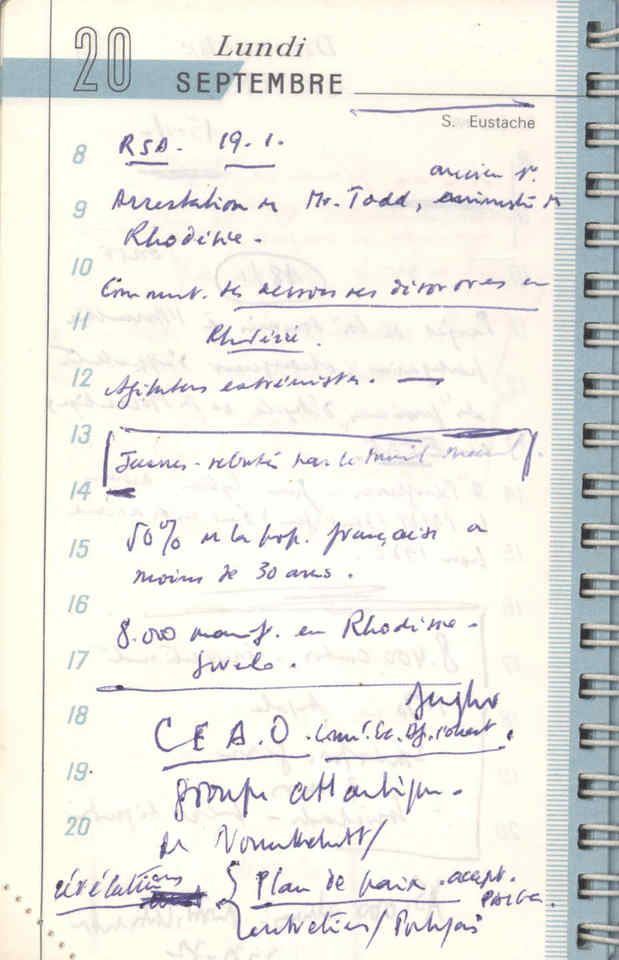 20 Lundi
SEPTEMBRE
S. Eustache
8 RSA. 19.1.
ancien 1r.
9 Arrestation de Mr. Todd, ministre
Rhodésie.
10
Comment. des des désordres en
11
Rhodésie.
12 Agitateurs extrémistes.
13
Jeunes - rebutés par le travail manuel.
14
50% de la pop. française a
15
moins de 30 ans.
16
8.000 manif. en Rhodésie -
17 Gwelo.
18
CEAO. Com. Ec. Af. ouest.
19
groupe atlantique.
20
de Nouakchott/
révélations Plan de paix. accept.
PAIGC.
entretien/Portugais